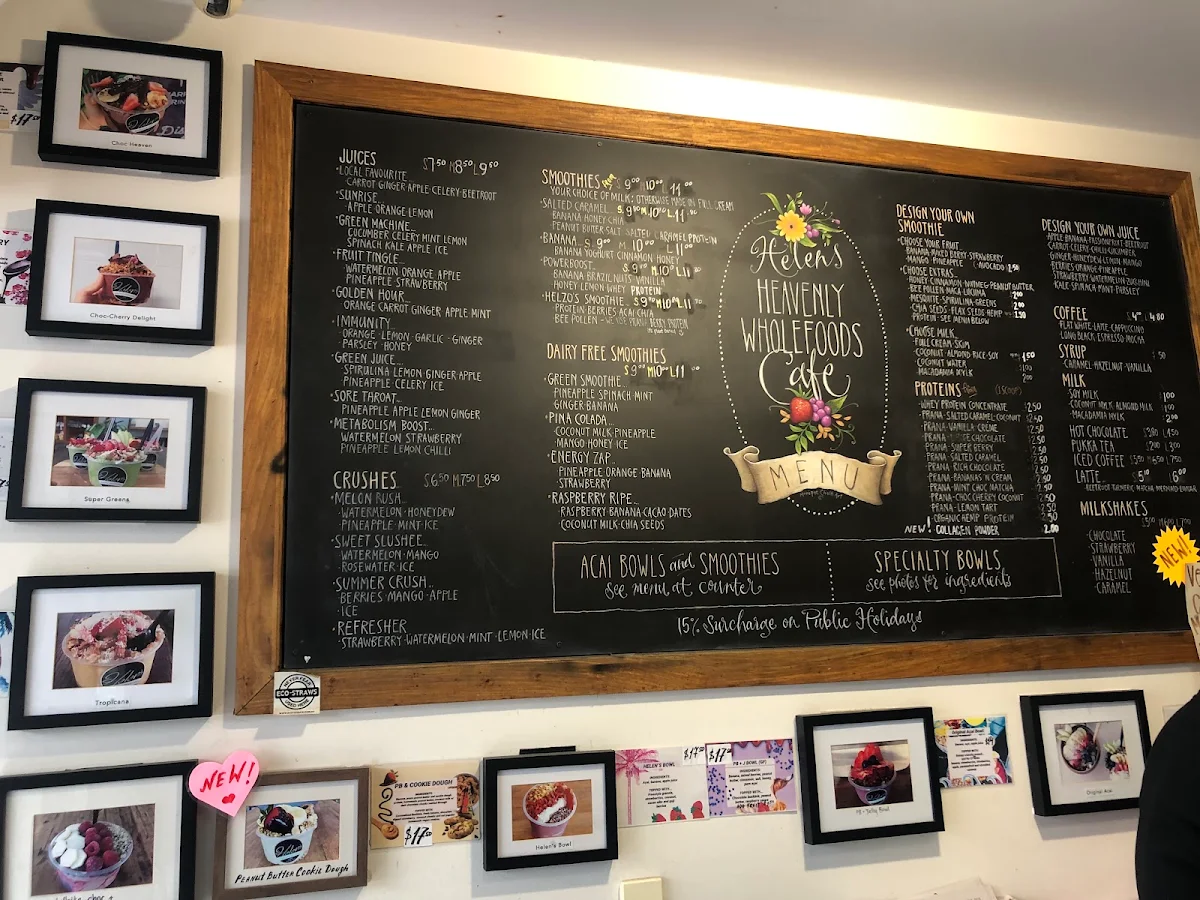 JUICES S7.50 M8.50 L9.50
·LOCAL FAVOURITE...
CARROT·GINGER·APPLE·CELERY·BEETROOT
·SUNRISE...
APPLE·ORANGE·LEMON
·GREEN MACHINE...
CUCUMBER·CELERY·MINT·LEMON
SPINACH·KALE·APPLE·ICE
·FRUIT TINGLE...
WATERMELON·ORANGE·APPLE
PINEAPPLE·STRAWBERRY
·GOLDEN HOUR...
ORANGE·CARROT·GINGER·APPLE·MINT
·IMMUNITY...
·ORANGE·LEMON·GARLIC·GINGER
PARSLEY·HONEY
·GREEN JUICE...
SPIRULINA·LEMON·GINGER·APPLE
PINEAPPLE·CELERY·ICE
·SORE THROAT...
PINEAPPLE·APPLE·LEMON·GINGER
·METABOLISM BOOST...
WATERMELON·STRAWBERRY
PINEAPPLE·LEMON·CHILLI
CRUSHES S6.50 M7.50 L8.50
·MELON RUSH...
·WATERMELON·HONEYDEW
·PINEAPPLE·MINT·ICE
·SWEET SLUSHEE...
·WATERMELON·MANGO
ROSEWATER·ICE
·SUMMER CRUSH...
·BERRIES·MANGO·APPLE
·ICE
·REFRESHER
·STRAWBERRY·WATERMELON·MINT·LEMON·ICE
SMOOTHIES S 9.00 M10.00 L11.00
YOUR CHOICE OF MILK: OTHERWISE MADE IN FULL CREAM
·SALTED CARAMEL... S.9.00 M.10.00 L11.00
BANANA·HONEY·CHIA
PEANUT BUTTER·SALT·SALTED CARAMEL PROTEIN
·BANANA... S.9.00 M.10.00 L11.00
BANANA·YOGHURT·CINNAMON·HONEY
·POWERBOOST... S.9.00 M10.00 L11.00
BANANA·BRAZIL NUTS·VANILLA
HONEY·LEMON·WHEY PROTEIN
·HELZO'S SMOOTHIE.. S.9.00 M10.00 L11.00
PROTEIN·BERRIES·ACAI·CHIA
BEE POLLEN
DAIRY FREE SMOOTHIES
S 9.00 M10.00 L11.00
·GREEN SMOOTHIE...
PINEAPPLE·SPINACH·MINT
GINGER·BANANA
·PINA COLADA...
COCONUT MILK·PINEAPPLE
·MANGO·HONEY·ICE
·ENERGY ZAP...
·PINEAPPLE·ORANGE·BANANA
STRAWBERRY
·RASPBERRY RIPE...
·RASPBERRY·BANANA·CACAO·DATES
·COCONUT MILK·CHIA SEEDS
Helen's
HEAVENLY
WHOLEFOODS
Cafe
MENU
DESIGN YOUR OWN
SMOOTHIE
·CHOOSE YOUR FRUIT
BANANA·MIXED BERRY·STRAWBERRY
·MANGO·PINEAPPLE (·AVOCADO 1.50
·CHOOSE EXTRAS...
·HONEY·CINNAMON·NUTMEG·PEANUT BUTTER
·BEE POLLEN·MACA·LUCUMA
·MESQUITE·SPIRULINA·GREENS
·CHIA SEEDS·FLAX SEEDS·HEMP
·PROTEIN·SEE MENU BELOW
·CHOOSE MILK...
·FULL CREAM·SKIM
·COCONUT·ALMOND·RICE·SOY 1.50
·COCONUT WATER
·MACADAMIA MYLK
PROTEINS
·WHEY PROTEIN CONCENTRATE 2.50
·PRANA·SALTED CARAMEL·COCONUT 2.50
·PRANA·VANILLA·CREME 2.50
·PRANA CHOCOLATE 2.50
·PRANA·SUPER BERRY 2.50
·PRANA·SALTED CARAMEL 2.50
·PRANA RICH CHOCOLATE 2.50
·PRANA·BANANAS N CREAM 2.50
·PRANA·MINT CHOC MATCHA 2.50
·PRANA·CHOC CHERRY COCONUT 2.50
·PRANA·LEMON TART 2.50
·ORGANIC HEMP PROTEIN 2.50
NEW! COLLAGEN POWDER 2.00
DESIGN YOUR OWN JUICE
·APPLE·BANANA·PASSIONFRUIT·BEETROOT
·CARROT·CELERY·CHILLI·CUCUMBER
·GINGER·HONEYDEW·LEMON·MANGO
·BERRIES·ORANGE·PINEAPPLE
·STRAWBERRY·WATERMELON·ZUCCHINI
·KALE·SPINACH·MINT·PARSLEY
COFFEE L 4.80
·FLAT WHITE·LATTE·CAPPUCCINO
·LONG BLACK·ESPRESSO·MOCHA
SYRUP .50
·CARAMEL·HAZELNUT·VANILLA
MILK
·SOY MILK 1.00
·COCONUT MILK·ALMOND MILK 1.00
·MACADAMIA MYLK 2.00
HOT CHOCOLATE
PUKKA TEA
ICED COFFEE
LATTE...
·BEETROOT·TURMERIC·MATCHA
MILKSHAKES
·CHOCOLATE
·STRAWBERRY
·VANILLA
·HAZELNUT
·CARAMEL
ACAI BOWLS and SMOOTHIES
see menu at counter
SPECIALTY BOWLS
see photos for ingredients
15% Surcharge on Public Holidays
Choc Heaven
Choc-Cherry Delight
Super Greens
Tropicana
NEW!
PEANUT BUTTER COOKIE DOUGH
ECO-STRAWS
PB & COOKIE DOUGH
$17
Helen's Bowl
HELEN'S BOWL
$17
$17
PB + J BOWL (GF)
PB + Jelly Bowl
Original Acai Bowl
Original Acai
NEW!
$17